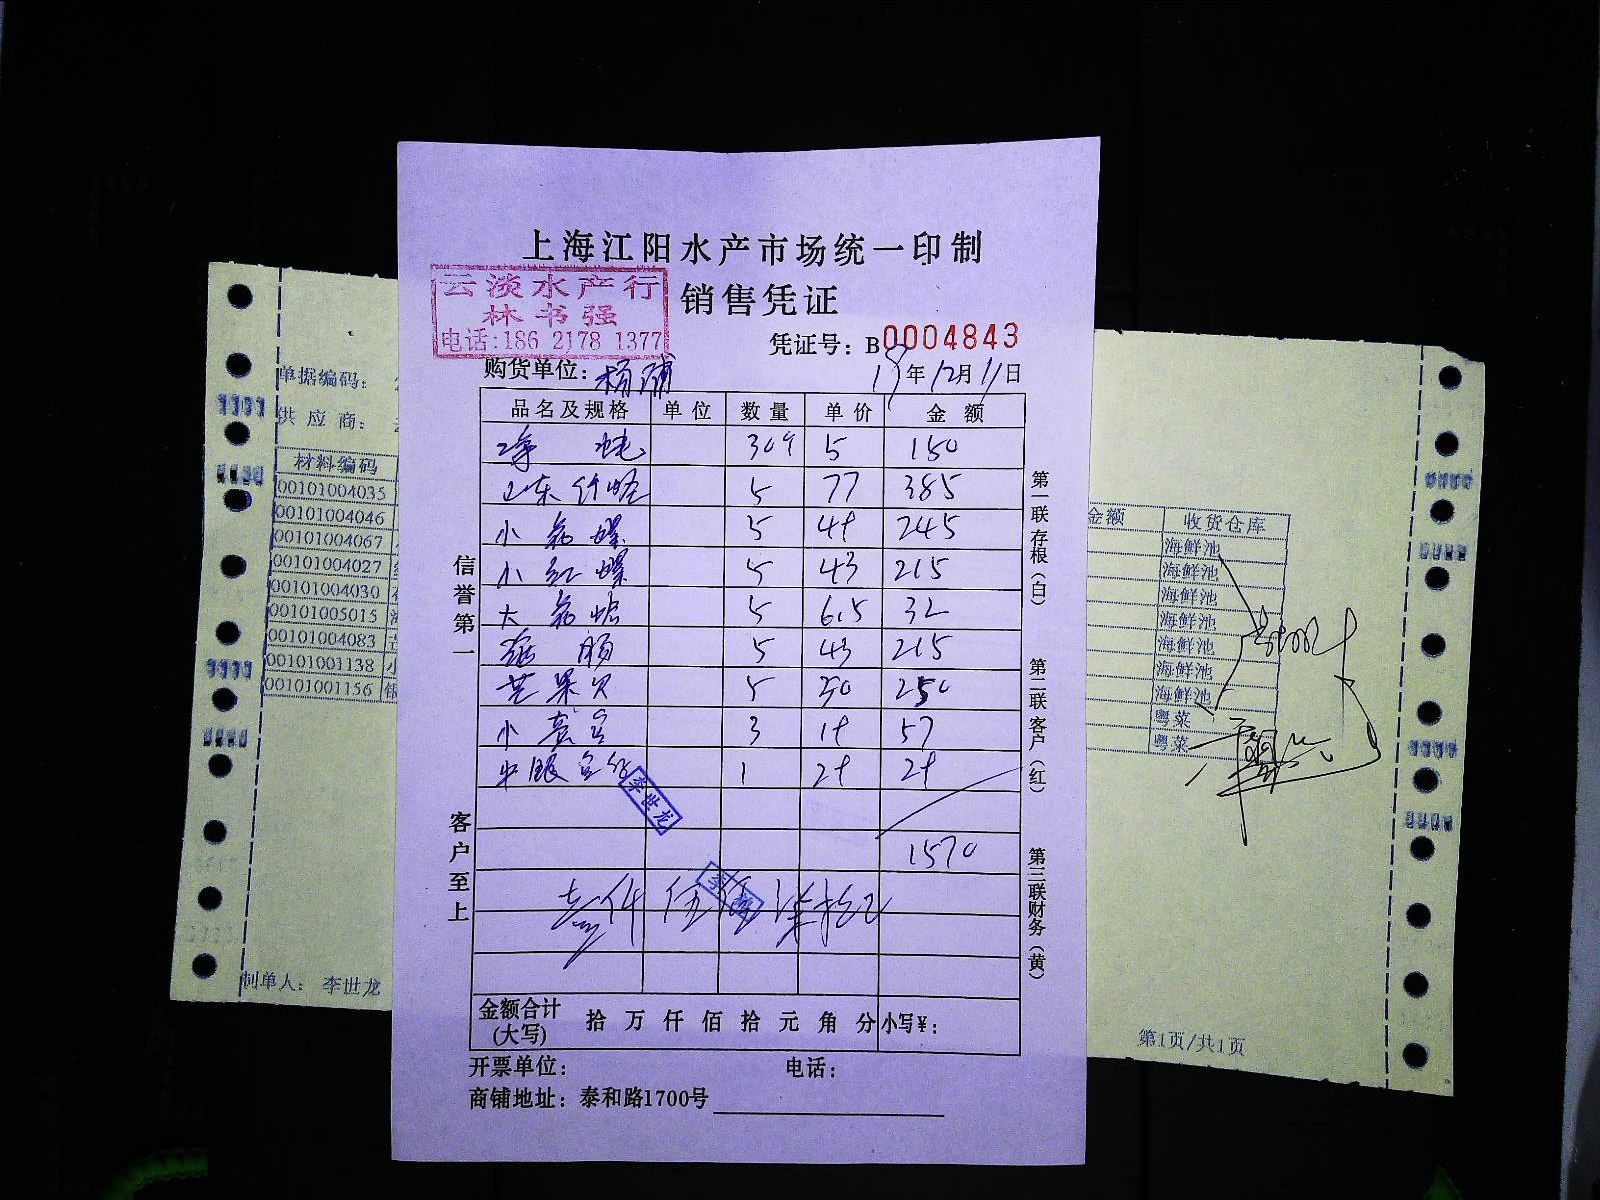 上海江阳水产市场统一印制
销售凭证
云淡水产行
林书强
电话:186 2178 1377
凭证号: B0004843
购货单位: 杨浦 19年12月11日
品名及规格 单位 数量 单价 金额
5 150
山东 5 77 385
小 螺 5 49 245
小红螺 5 43 215
大 5 6.5 32
肠 5 43 215
芒果贝 5 50 250
小 3 19 57
1 29 29
李世龙
1570
金额合计(大写) 拾 万 仟 佰 拾 元 角 分 小写¥:
开票单位: 电话:
商铺地址: 泰和路1700号
信誉第一
客户至上
第一联存根(白)
第二联客户(红)
第三联财务(黄)
单据编码:
供应商:
材料编码
00101004035
00101004046
00101004067
00101004027
00101004030
00101005015
00101004083
00101001138 小
00101001156 银
制单人: 李世龙
金额 收货仓库
海鲜池
海鲜池
海鲜池
海鲜池
海鲜池
海鲜池
海鲜池
粤菜
粤菜
第1页/共1页